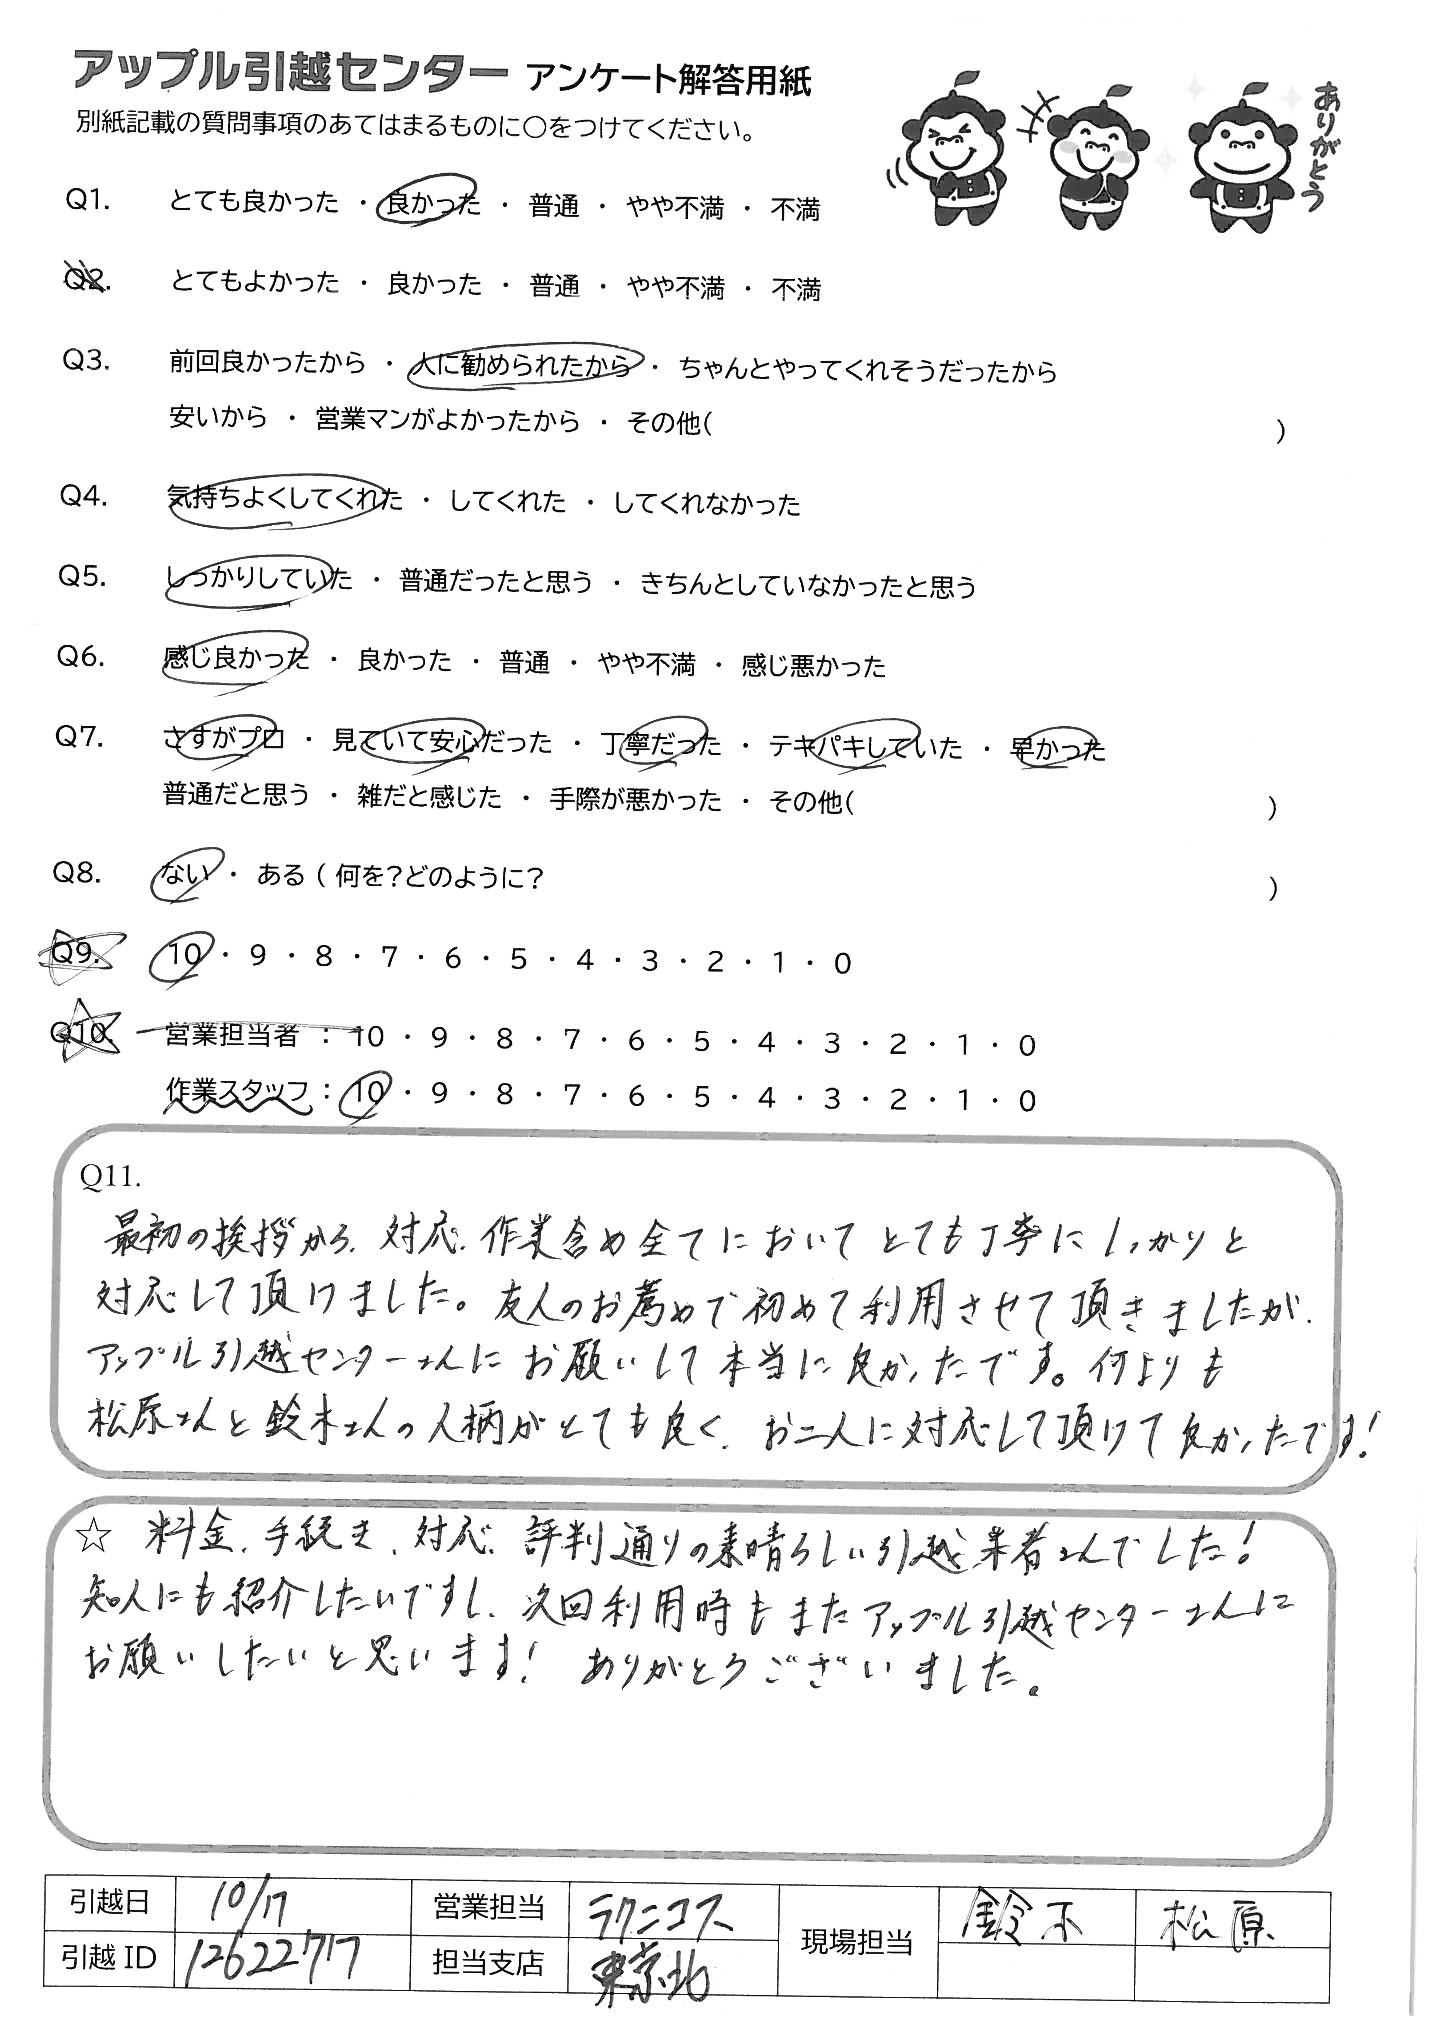 アップル引越センター アンケート解答用紙
別紙記載の質問事項のあてはまるものに○をつけてください。
ありがとう
Q1. とても良かった ・ 良かった ・ 普通 ・ やや不満 ・ 不満
Q2. とてもよかった ・ 良かった ・ 普通 ・ やや不満 ・ 不満
Q3. 前回良かったから ・ 人に勧められたから ・ ちゃんとやってくれそうだったから
安いから ・ 営業マンがよかったから ・ その他( )
Q4. 気持ちよくしてくれた ・ してくれた ・ してくれなかった
Q5. しっかりしていた ・ 普通だったと思う ・ きちんとしていなかったと思う
Q6. 感じ良かった ・ 良かった ・ 普通 ・ やや不満 ・ 感じ悪かった
Q7. さすがプロ ・ 見ていて安心だった ・ 丁寧だった ・ テキパキしていた ・ 早かった
普通だと思う ・ 雑だと感じた ・ 手際が悪かった ・ その他( )
Q8. ない ・ ある ( 何を?どのように? )
Q9. 10 ・ 9 ・ 8 ・ 7 ・ 6 ・ 5 ・ 4 ・ 3 ・ 2 ・ 1 ・ 0
Q10. 営業担当者 : 10 ・ 9 ・ 8 ・ 7 ・ 6 ・ 5 ・ 4 ・ 3 ・ 2 ・ 1 ・ 0
作業スタッフ : 10 ・ 9 ・ 8 ・ 7 ・ 6 ・ 5 ・ 4 ・ 3 ・ 2 ・ 1 ・ 0
Q11.
最初の挨拶から、対応、作業含め全てにおいてとても丁寧にしっかりと
対応して頂けました。友人のお薦めで初めて利用させて頂きましたが、
アップル引越センターさんにお願いして本当に良かったです。何よりも
松原さんと鈴木さんの人柄がとても良く、お二人に対応して頂けて良かったです!
☆ 料金、手続き、対応、評判通りの素晴らしい引越業者さんでした!
知人にも紹介したいですし、次回利用時もまたアップル引越センターさんに
お願いしたいと思います! ありがとうございました。
引越日 10/17 営業担当 ラクニコス 現場担当 鈴木 松原
引越 ID 12622717 担当支店 東京北